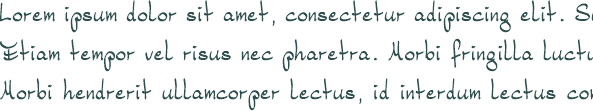 Lorem ipsum dolor sit amet, consectetur adipiscing elit. S
Etiam tempor vel risus nec pharetra. Morbi fringilla luctu
Morbi hendrerit ullamcorper lectus, id interdum lectus con